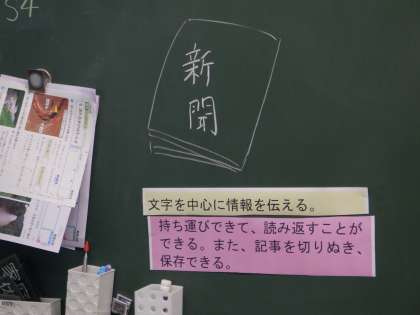 54
新
聞
文字を中心に情報を伝える。
持ち運びできて、読み返すことが
できる。また、記事を切りぬき、
保存できる。